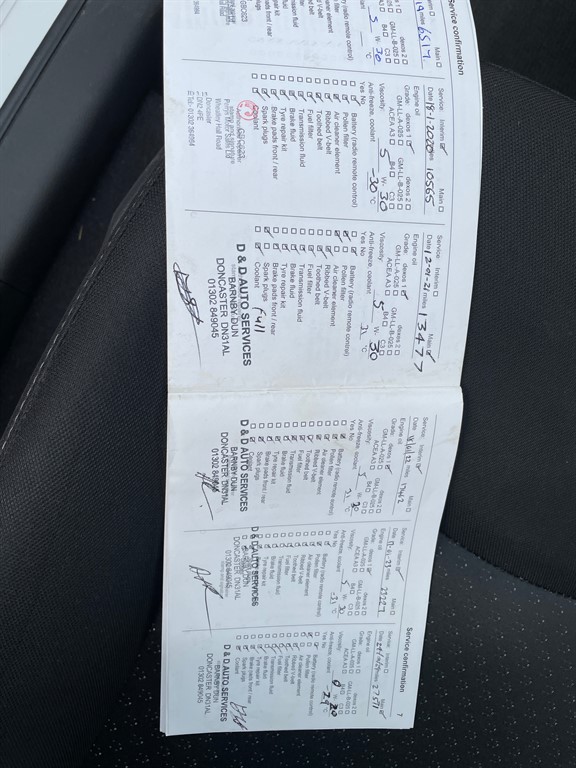 Service confirmation
Interim ☐ Main ☐
miles 6517
dexos 2 ☐
GM-LL-B-025 ☐
B4 ☐ C3 ☐
5 W- 30
°C
Battery (radio remote control)
Pollen filter
Air cleaner element
Ribbed V-belt
Toothed belt
Fuel filter
Transmission fluid
Brake fluid
Tyre repair kit
Brake pads front / rear
Spark plugs
Coolant
Service: Interim ☑ Main ☐
Date 18-1-2020 miles 10565
Engine oil
Grade: dexos 1 ☑ dexos 2 ☐
GM-LL-A-025 ☐ GM-LL-B-025 ☐
ACEA A3 ☐ B4 ☐ C3 ☐
Viscosity: 5 W- 30
Anti-freeze, coolant -30 °C
Yes No
Battery (radio remote control)
Pollen filter
Air cleaner element
Ribbed V-belt
Toothed belt
Fuel filter
Transmission fluid
Brake fluid
Tyre repair kit
Brake pads front / rear
Spark plugs
Coolant
Wheatley Hall Road
Doncaster
DN2 4PE
Tel: 01302 364884
Service: Interim ☐ Main ☑
Date 12-01-21 miles 13477
Engine oil
Grade: dexos 1 ☑ dexos 2 ☐
GM-LL-A-025 ☐ GM-LL-B-025 ☐
ACEA A3 ☐ B4 ☐ C3 ☐
Viscosity: 5 W- 30
Anti-freeze, coolant °C
Yes No
Battery (radio remote control)
Pollen filter
Air cleaner element
Ribbed V-belt
Toothed belt
Fuel filter
Transmission fluid
Brake fluid
Tyre repair kit
Brake pads front / rear
Spark plugs
Coolant full
D & D AUTO SERVICES
BARNBY DUN
DONCASTER DN31AL
01302 849045
Service: Interim ☑ Main ☐
Date miles
Engine oil
Grade: dexos 1 dexos 2 ☐
GM-LL-A-025 ☐ GM-LL-B-025 ☐
ACEA A3 ☐ B4 ☐ C3 ☐
Viscosity: 5 W- 30
Anti-freeze, coolant °C
Yes No
Battery (radio remote control)
Pollen filter
Air cleaner element
Ribbed V-belt
Toothed belt
Fuel filter
Transmission fluid
Brake fluid
Tyre repair kit
Brake pads front / rear
Spark plugs
Coolant
D & D AUTO SERVICES
BARNBY DUN
DONCASTER DN31AL
01302 849045
Service: Interim Main ☐
Date miles
Engine oil
Grade: dexos 1 dexos 2 ☐
GM-LL-A-025 ☐ GM-LL-B-025 ☐
ACEA A3 ☐ B4 ☐ C3 ☐
Viscosity: 5 W- 30
Anti-freeze, coolant °C
Yes No
Battery (radio remote control)
Pollen filter
Air cleaner element
Ribbed V-belt
Toothed belt
Fuel filter
Transmission fluid
Brake fluid
Tyre repair kit
D & D AUTO SERVICES
BARNBY DUN
DONCASTER DN31AL
01302 849045
Service confirmation
7
Service: Interim ☐ Main
Date miles 27511
Engine oil
Grade: dexos 1 ☐ dexos 2 ☐
GM-LL-A-025 ☐ GM-LL-B-025 ☐
ACEA A3 ☐ B4 ☐ C3 ☐
Viscosity: 0 W- 20
Anti-freeze, coolant -29 °C
Yes No
Battery (radio remote control)
Pollen filter
Air cleaner element
Ribbed V-belt
Toothed belt
Fuel filter
Transmission fluid
Brake fluid
Tyre repair kit
Brake pads front / rear
Spark plugs
Coolant
D & D AUTO SERVICES
BARNBY DUN
DONCASTER DN31AL
01302 849045